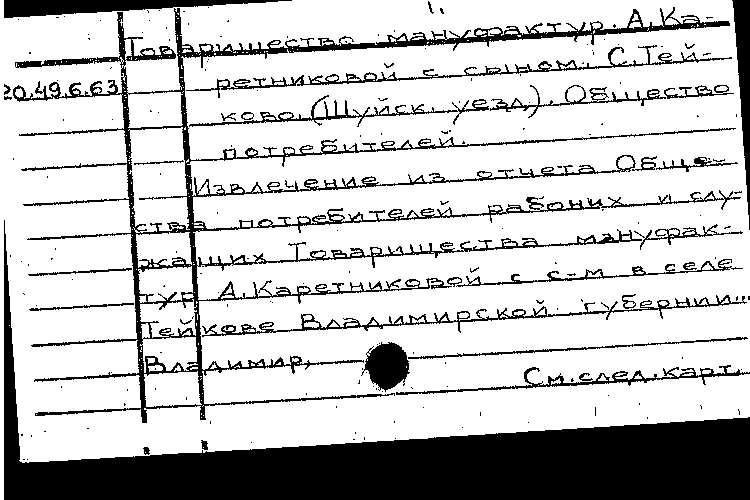 1.
Товарищество мануфактур. А.Ка-
20.49.6.63 ретниковой с сыном. С.Тей-
ково.(Шуйск. уезд). Общество
потребителей.
Извлечение из отчета Обще-
ства потребителей рабочих и слу-
жащих Товарищества мануфак-
тур А.Каретниковой с с-м в селе
Тейкове Владимирской губернии...
Владимир,
См.след.карт.